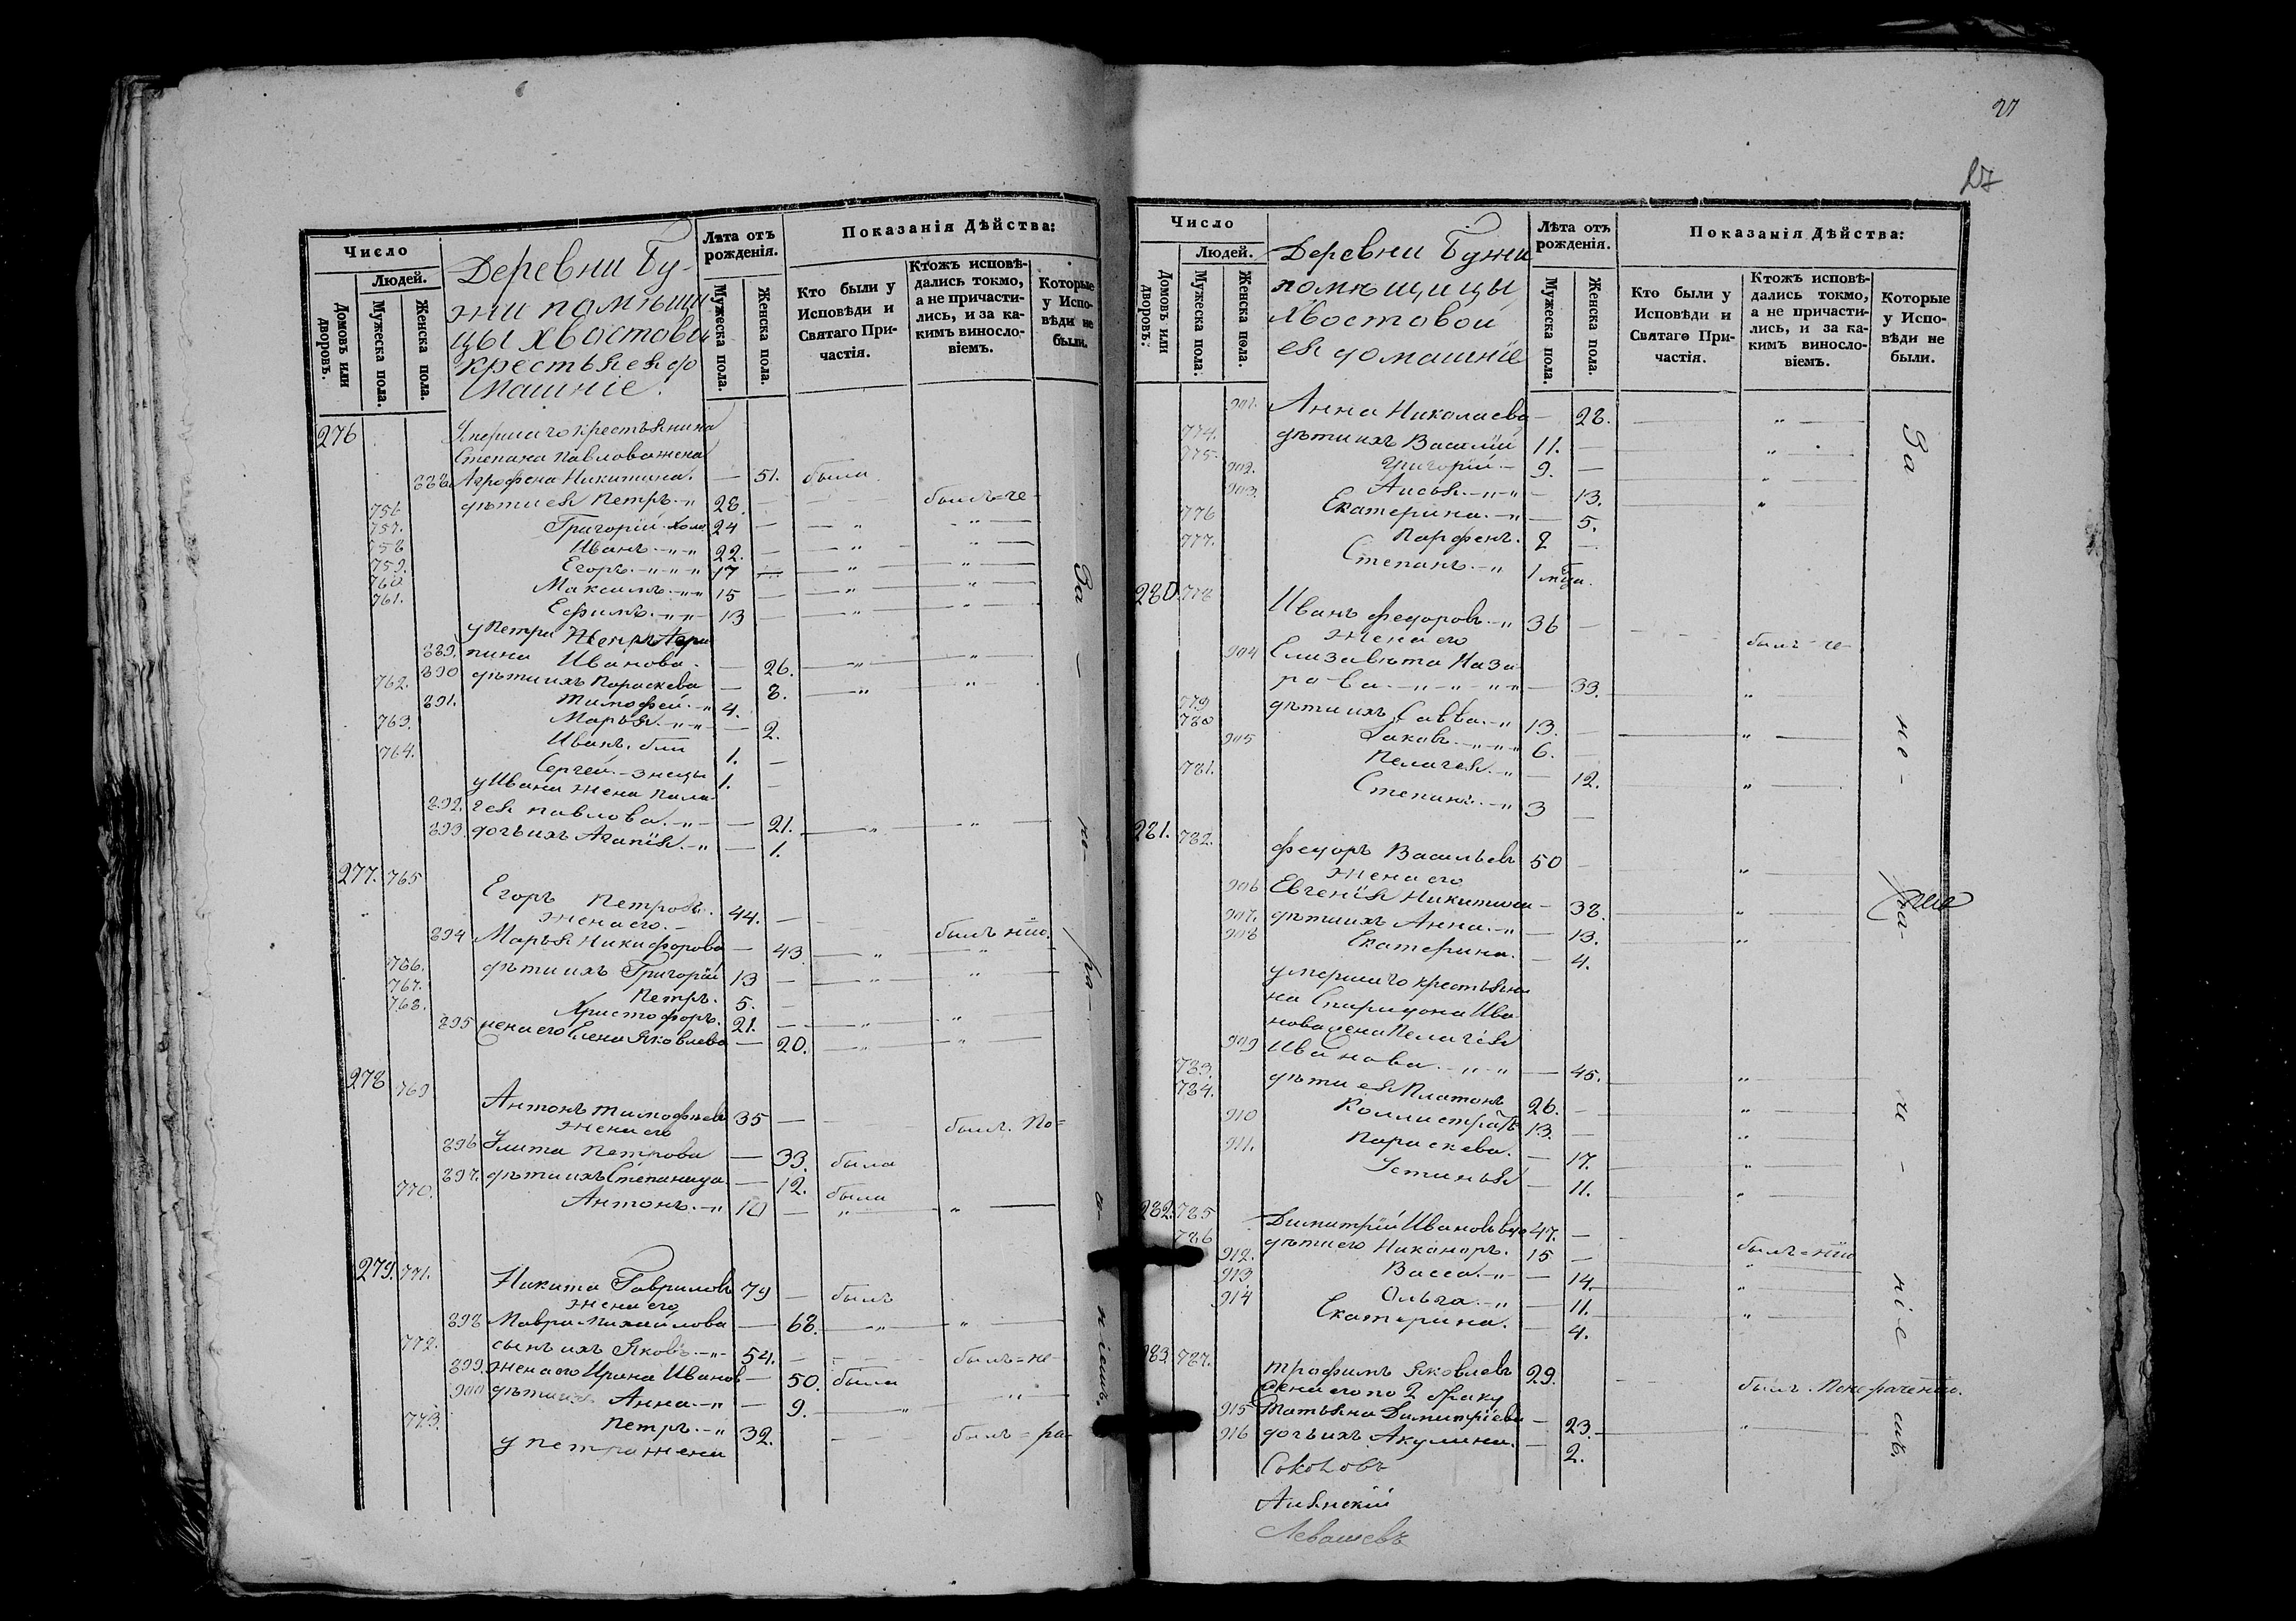 27
27
Число
Людей.
Домовъ или дворовъ.
Мужеска пола.
Женска пола.
Деревни Бу-
жи помѣщи
цы Хвостовой
крестьяне ея до
машніе.
Лѣта отъ рожденія.
Мужеска пола.
Женска пола.
Показанія Дѣйства:
Кто были у Исповѣди и Святаго При-частія.
Ктожъ исповѣ-дались токмо, а не причасти-лись, и за ка-кимъ винослο-віемъ.
Которые у Испо-вѣди не были.
276 Умершаго крестьянина
Степана Павлова жена
888. Агрофена Никитина. — 51. была
756 дѣти ея Петръ 28. былъ=не-
757. Григорій холо 24 —
758 Иванъ 22. —
759. Егоръ 17 —
760 Максимъ 15 —
761. Ефимъ 13 —
у Петра
889. пина Иванова. — 26.
890 дѣти ихъ Параскева — 8.
762. Тимофей 4.
891. Марья — 2.
763. Иванъ 1. —
764. Сергей 1. —
у Ивана жена Пела
892. гея Павлова. — 21.
893. дочь ихъ Агапія — 1.
277. 765 Егоръ Петровъ. 44. — былъ нію.
жена его.
894 Марья Никифорова — 43.
766. дѣти ихъ Григорій 13 —
767. Петръ. 5. —
768. Христофоръ. 21. —
895 жена его Елена Яковлева — 20.
278 769 Антонъ Тимофѣевъ 35 — былъ. По=
жена его
896 Улита Петрова — 33. была
897. дѣти ихъ Степанида — 12. была
770. Антонъ 10 —
279. 771. Никита Гавриловъ 79 — былъ
жена его
898 Мавра Михайлова — 68.
772. сынъ ихъ Яковъ 54. — былъ=не-
899. жена его Ирина Иванов — 50. была
900 дѣти ихъ Анна — 9.
773. Петръ 32. былъ=ра-
у Петра жена
За - не- ра- - ніемъ.
Число
Людей.
Домовъ или дворовъ.
Мужеска пола.
Женска пола.
Деревни Бужи
помѣщицы
Хвостовой
ея домашніе
Лѣта отъ рожденія.
Мужеска пола.
Женска пола.
Показанія Дѣйства:
Кто были у Исповѣди и Святаго При-частія.
Ктожъ исповѣ-дались токмо, а не причасти-лись, и за ка-кимъ винослο-віемъ.
Которые у Испо-вѣди не были.
901. Анна Николаева — 28.
774. дѣти ихъ Василій 11. —
775. Григорій 9. —
902. Аисья — 13.
903. Екатерина — 5.
776 Парфенъ. 8 —
777. Степанъ 1 мѣца.
280 778 Иванъ Федоровъ 36 — былъ-не-
жена его
904 Елизавѣта Наза
рова — 33.
779 дѣти ихъ Савва 13. —
780 Яковъ 6. —
905 Пелагея — 12.
781. Степанъ 3 —
281. 782. Федоръ Васильевъ 50 —
жена его
906 Евгенія Никитина — 38.
907. дѣти ихъ Анна — 13.
908 Екатерина. — 4.
умершаго крестьяни
на Спиридона Ива
нова жена Пелагея
909 Иванова — 45.
783. дѣти ея Платонъ 26. —
784. Каллистратъ 13. —
910 Параскева. — 17.
911. Устинья — 11.
282. 785 Димитрій Ивановъ вдо 47. — былъ=нію
786 дѣти его Никаноръ. 15 —
912. Васса — 14.
913. Ольга — 11.
914 Екатерина. — 4.
283 787. Трофимъ Яковлевъ 29. былъ. По нерачению.
жена его по 2 браку
915 Татьяна Димитріева — 23.
916 дочь ихъ Акулина. — 2.
За не - ра- че - ніе мъ.
Соколовъ
Левашевъ